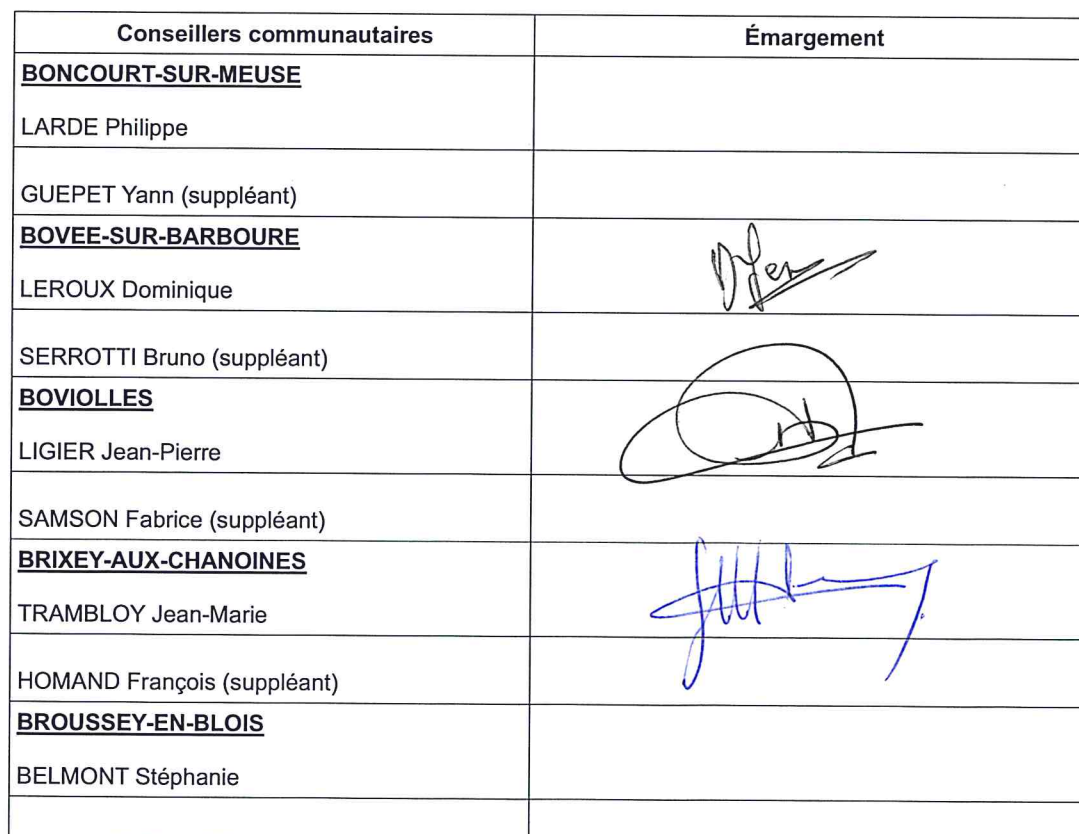 Conseillers communautaires
Émargement
BONCOURT-SUR-MEUSE
LARDE Philippe
GUEPET Yann (suppléant)
BOVEE-SUR-BARBOURE
LEROUX Dominique
SERROTTI Bruno (suppléant)
BOVIOLLES
LIGIER Jean-Pierre
SAMSON Fabrice (suppléant)
BRIXEY-AUX-CHANOINES
TRAMBLOY Jean-Marie
HOMAND François (suppléant)
BROUSSEY-EN-BLOIS
BELMONT Stéphanie